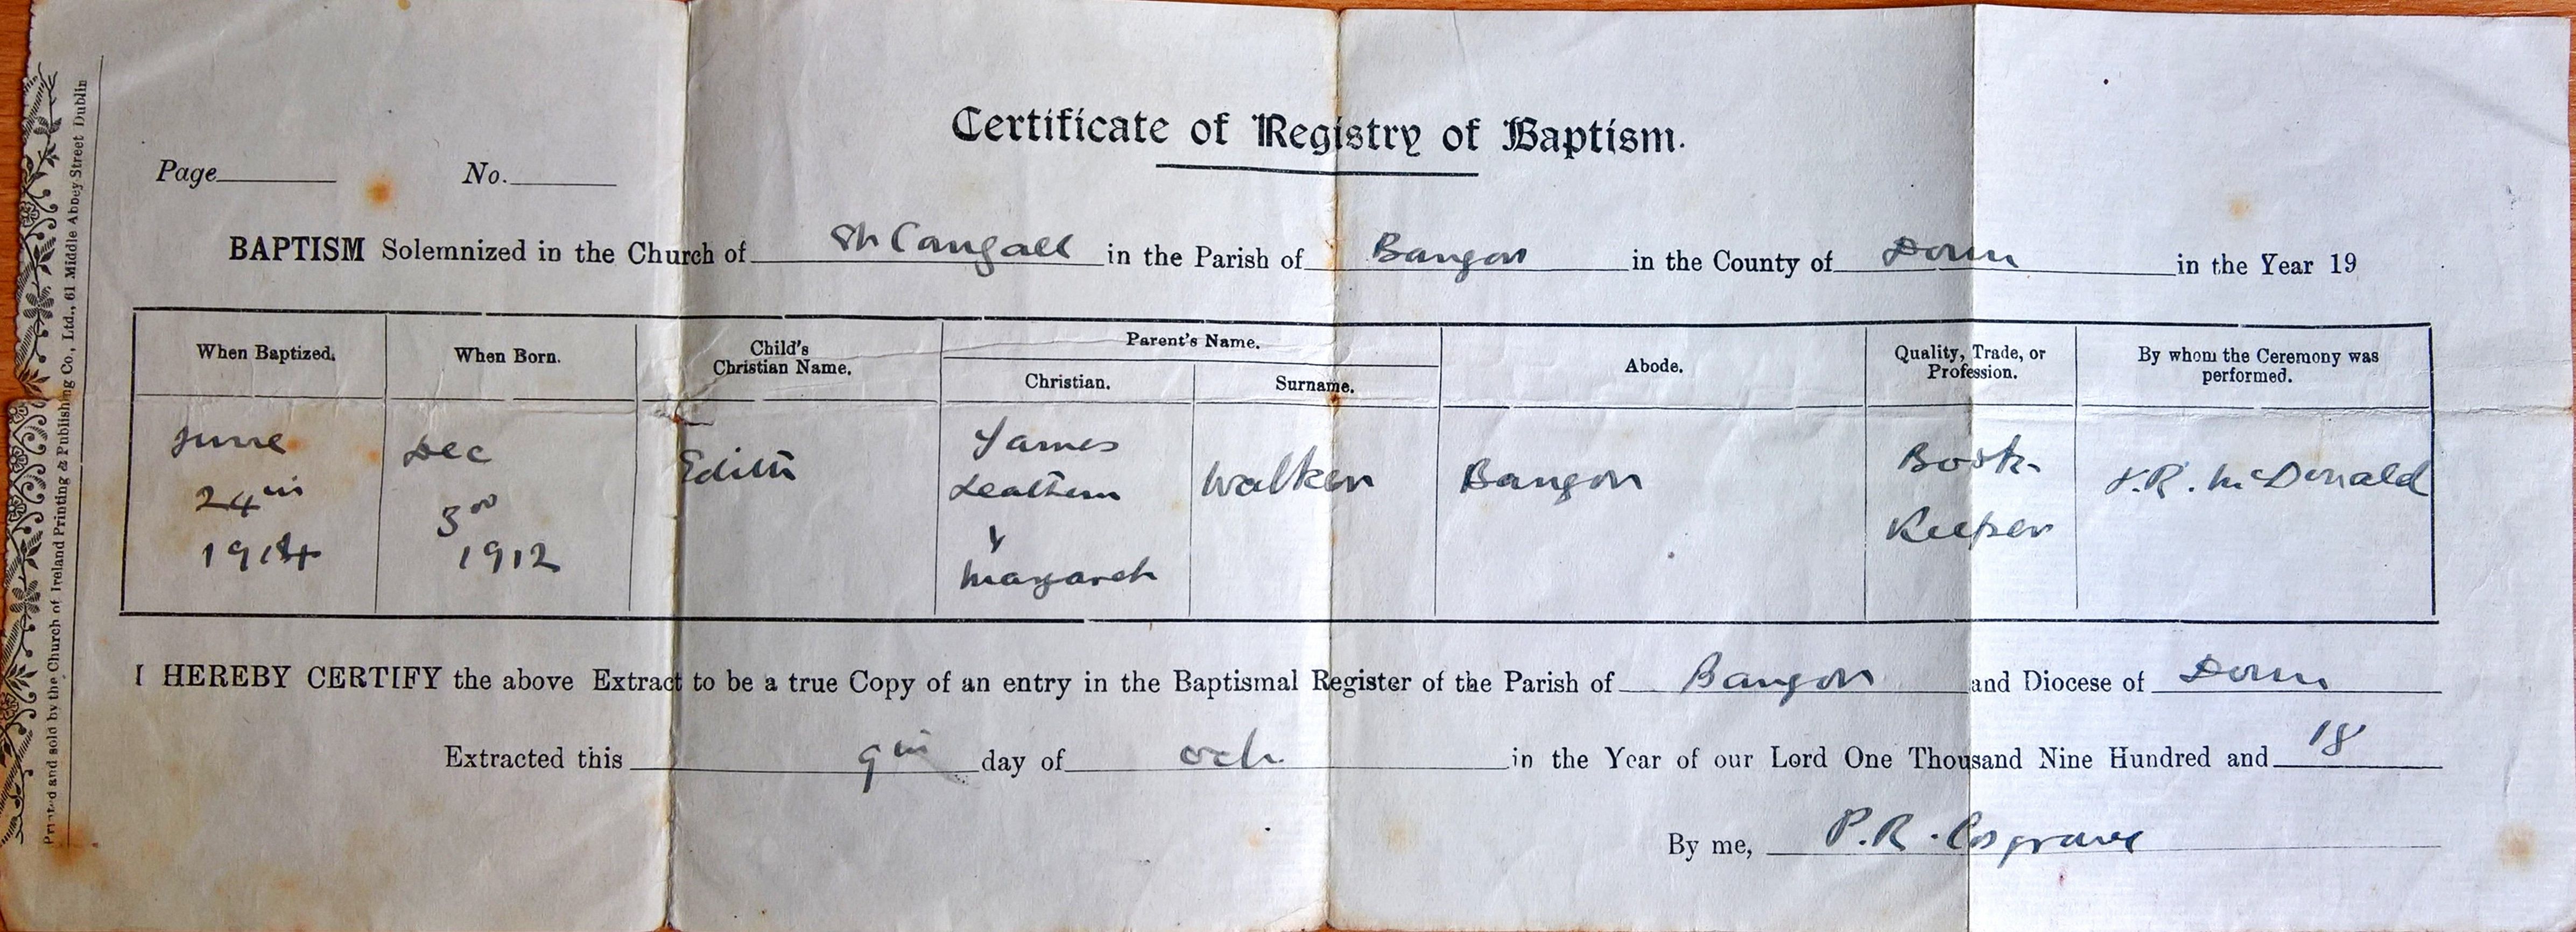 Certificate of Registry of Baptism.
Page No.
BAPTISM Solemnized in the Church of St Comgall in the Parish of Bangor in the County of Down in the Year 19
When Baptized. When Born. Child's Christian Name. Parent's Name. Christian. Surname. Abode. Quality, Trade, or Profession. By whom the Ceremony was performed.
June
24th
1914
Dec
3rd
1912
Edith
James
Leathem
&
Margaret
Walker
Bangor
Book-
Keeper
McDonald
I HEREBY CERTIFY the above Extract to be a true Copy of an entry in the Baptismal Register of the Parish of Bangor and Diocese of Down
Extracted this 9th day of Oct in the Year of our Lord One Thousand Nine Hundred and 18
By me, P.R. Cosgrave
Printed and sold by the Church of Ireland Printing & Publishing Co., Ltd., 61 Middle Abbey Street Dublin